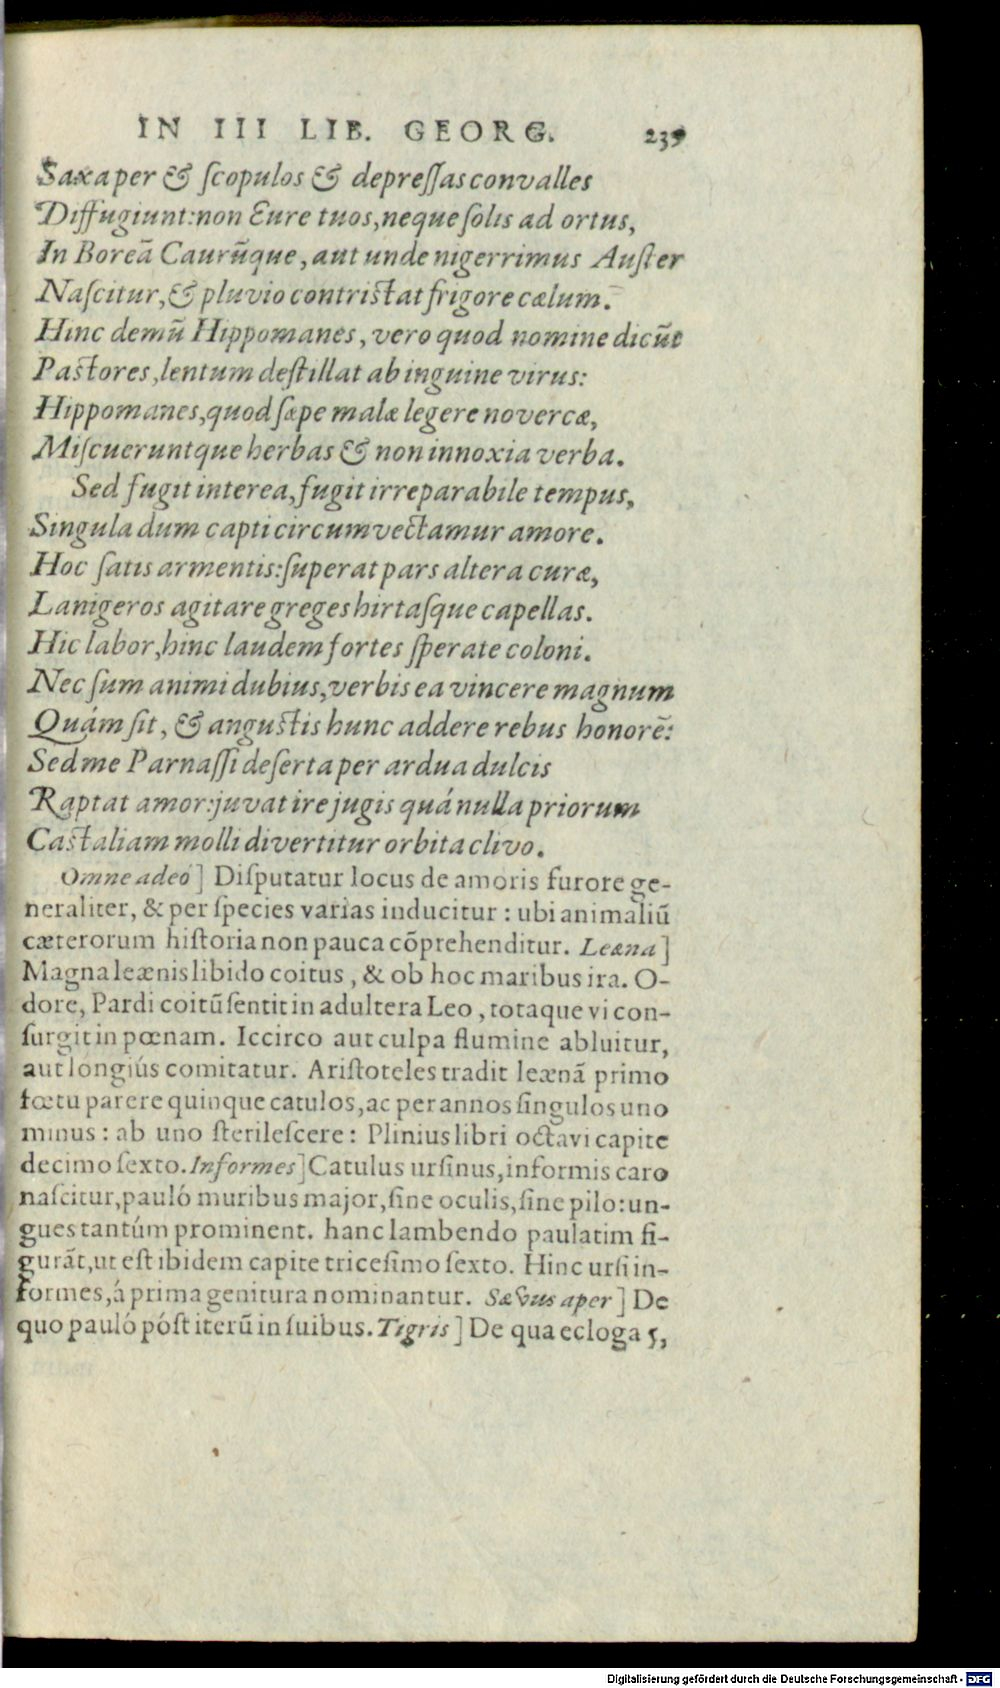 IN III LIB. GEORG. 239
Saxa per & ſcopulos & depreſſas convalles
Diffugiunt: non Eure tuos, neque ſolis ad ortus,
In Boreã Caurũque, aut unde nigerrimus Auſter
Naſcitur, & pluvio contriſtat frigore cælum.
Hinc demũ Hippomanes, vero quod nomine dicũt
Paſtores, lentum deſtillat ab inguine virus:
Hippomanes, quod ſæpe malæ legere novercæ,
Miſcueruntque herbas & non innoxia verba.
Sed fugit interea, fugit irreparabile tempus,
Singula dum capti circumvectamur amore.
Hoc ſatis armentis: ſuperat pars altera curæ,
Lanigeros agitare greges hirtaſque capellas.
Hic labor, hinc laudem fortes ſperate coloni.
Nec ſum animi dubius, verbis ea vincere magnum
Quám ſit, & anguſtis hunc addere rebus honorẽ:
Sed me Parnaſſi deſerta per ardua dulcis
Raptat amor: juvat ire jugis quá nulla priorum
Caſtaliam molli divertitur orbita clivo.
Omne adeó] Diſputatur locus de amoris furore ge-
neraliter, & per ſpecies varias inducitur: ubi animaliũ
cæterorum hiſtoria non pauca cõprehenditur. Leæna]
Magna leænis libido coitus, & ob hoc maribus ira. O-
dore, Pardi coitũ ſentit in adultera Leo, totaque vi con-
ſurgit in pœnam. Iccirco aut culpa flumine abluitur,
aut longiús comitatur. Ariſtoteles tradit leænã primo
fœtu parere quinque catulos, ac per annos ſingulos uno
minus: ab uno ſterileſcere: Plinius libri octavi capite
decimo ſexto. Informes] Catulus urſinus, informis caro
naſcitur, pauló muribus major, ſine oculis, ſine pilo: un-
gues tantúm prominent. hanc lambendo paulatim fi-
gurãt, ut eſt ibidem capite triceſimo ſexto. Hinc urſi in-
formes, á prima genitura nominantur. Sævus aper] De
quo pauló póſt iterũ in ſuibus. Tigris] De qua ecloga 5,
Digitalisierung gefördert durch die Deutsche Forschungsgemeinschaft - DFG